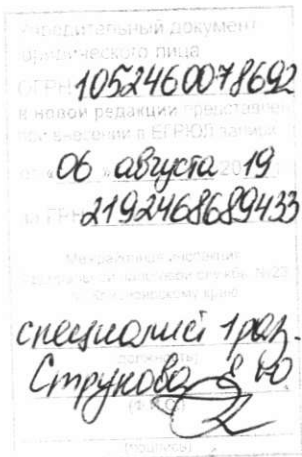 Учредительный документ
юридического лица
ОГРН 1052460078692
в новой редакции представлен
при внесении в ЕГРЮЛ записи
от « 06 » августа 2019
за ГРН 2192468689433
Межрайонная инспекция
Федеральной налоговой службы №23
по Красноярскому краю
специалист 1 раз.
(должность)
Струкова Е Ю
(Ф.И.О.)
(подпись)